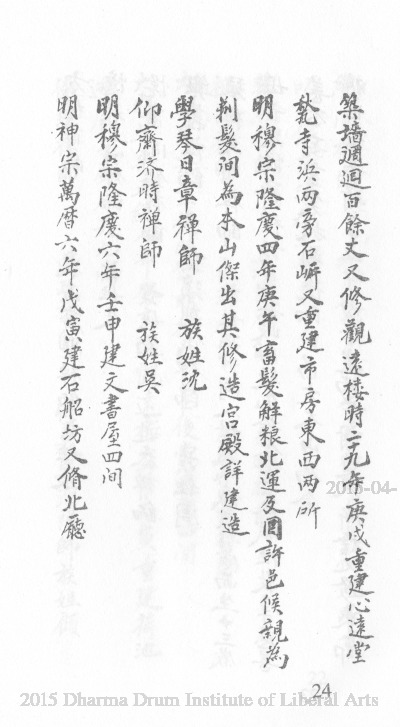 築墻週迴百餘丈又修觀遠樓時二九年庚戌重建心遠堂
甃寺浜兩旁石岸又重建市房東西兩所
明穆宗隆慶四年庚午畜髮解粮北運及回許邑候親為
剃髮詞為本山傑出其修造宮殿詳建造
學琴日章禪師 族姓沈
仰齋济時禅師 族姓吴
明穆宗隆慶六年壬申建文書屋四间
明神宗萬曆六年戊寅建石船坊又脩北廳
2015-04-
24
2015 Dharma Drum Institute of Liberal Arts